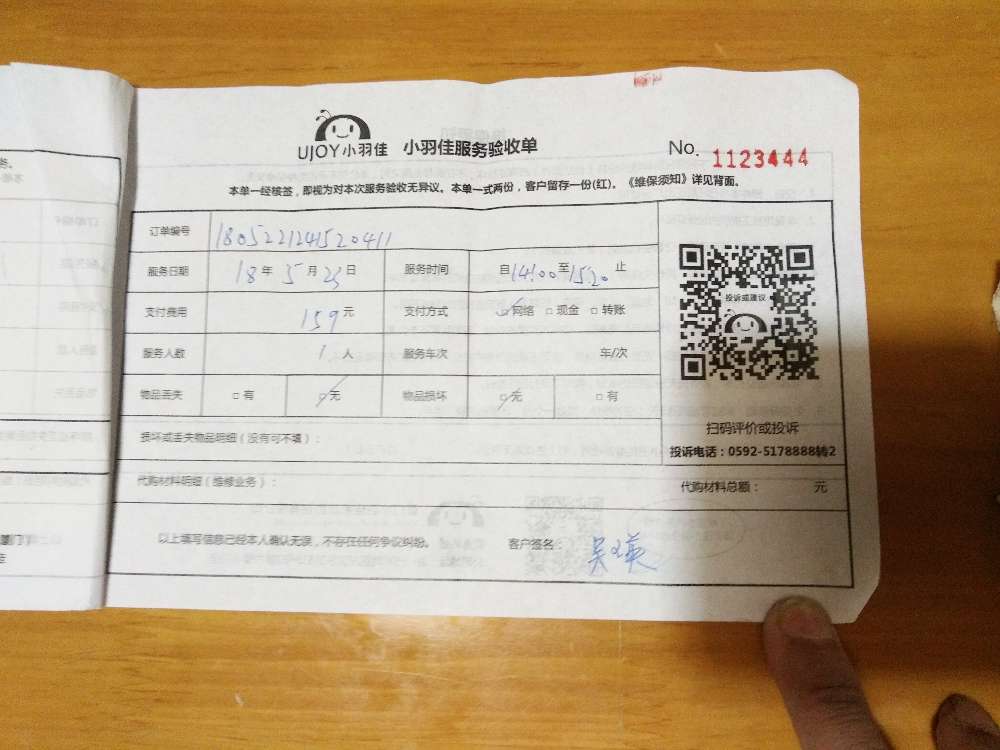 UJOY小羽佳 小羽佳服务验收单 No. 1123444
本单一经核签，即视为对本次服务验收无异议。本单一式两份，客户留存一份(红)。《维保须知》详见背面。
订单编号 1805221241520411
服务日期 18 年 5 月 23 日 服务时间 自 14:00 至 15:20 止
支付费用 159 元 支付方式 ☑ 网络 □ 现金 □ 转账
服务人数 1 人 服务车次 车/次
物品丢失 □ 有 ☑ 无 物品损坏 ☑ 无 □ 有
投诉或建议
扫码评价或投诉
投诉电话：0592-5178888转2
损坏或丢失物品明细（没有可不填）：
代购材料明细（维修业务）： 代购材料总额： 元
以上填写信息已经本人确认无误，不存在任何争议纠纷。 客户签名：